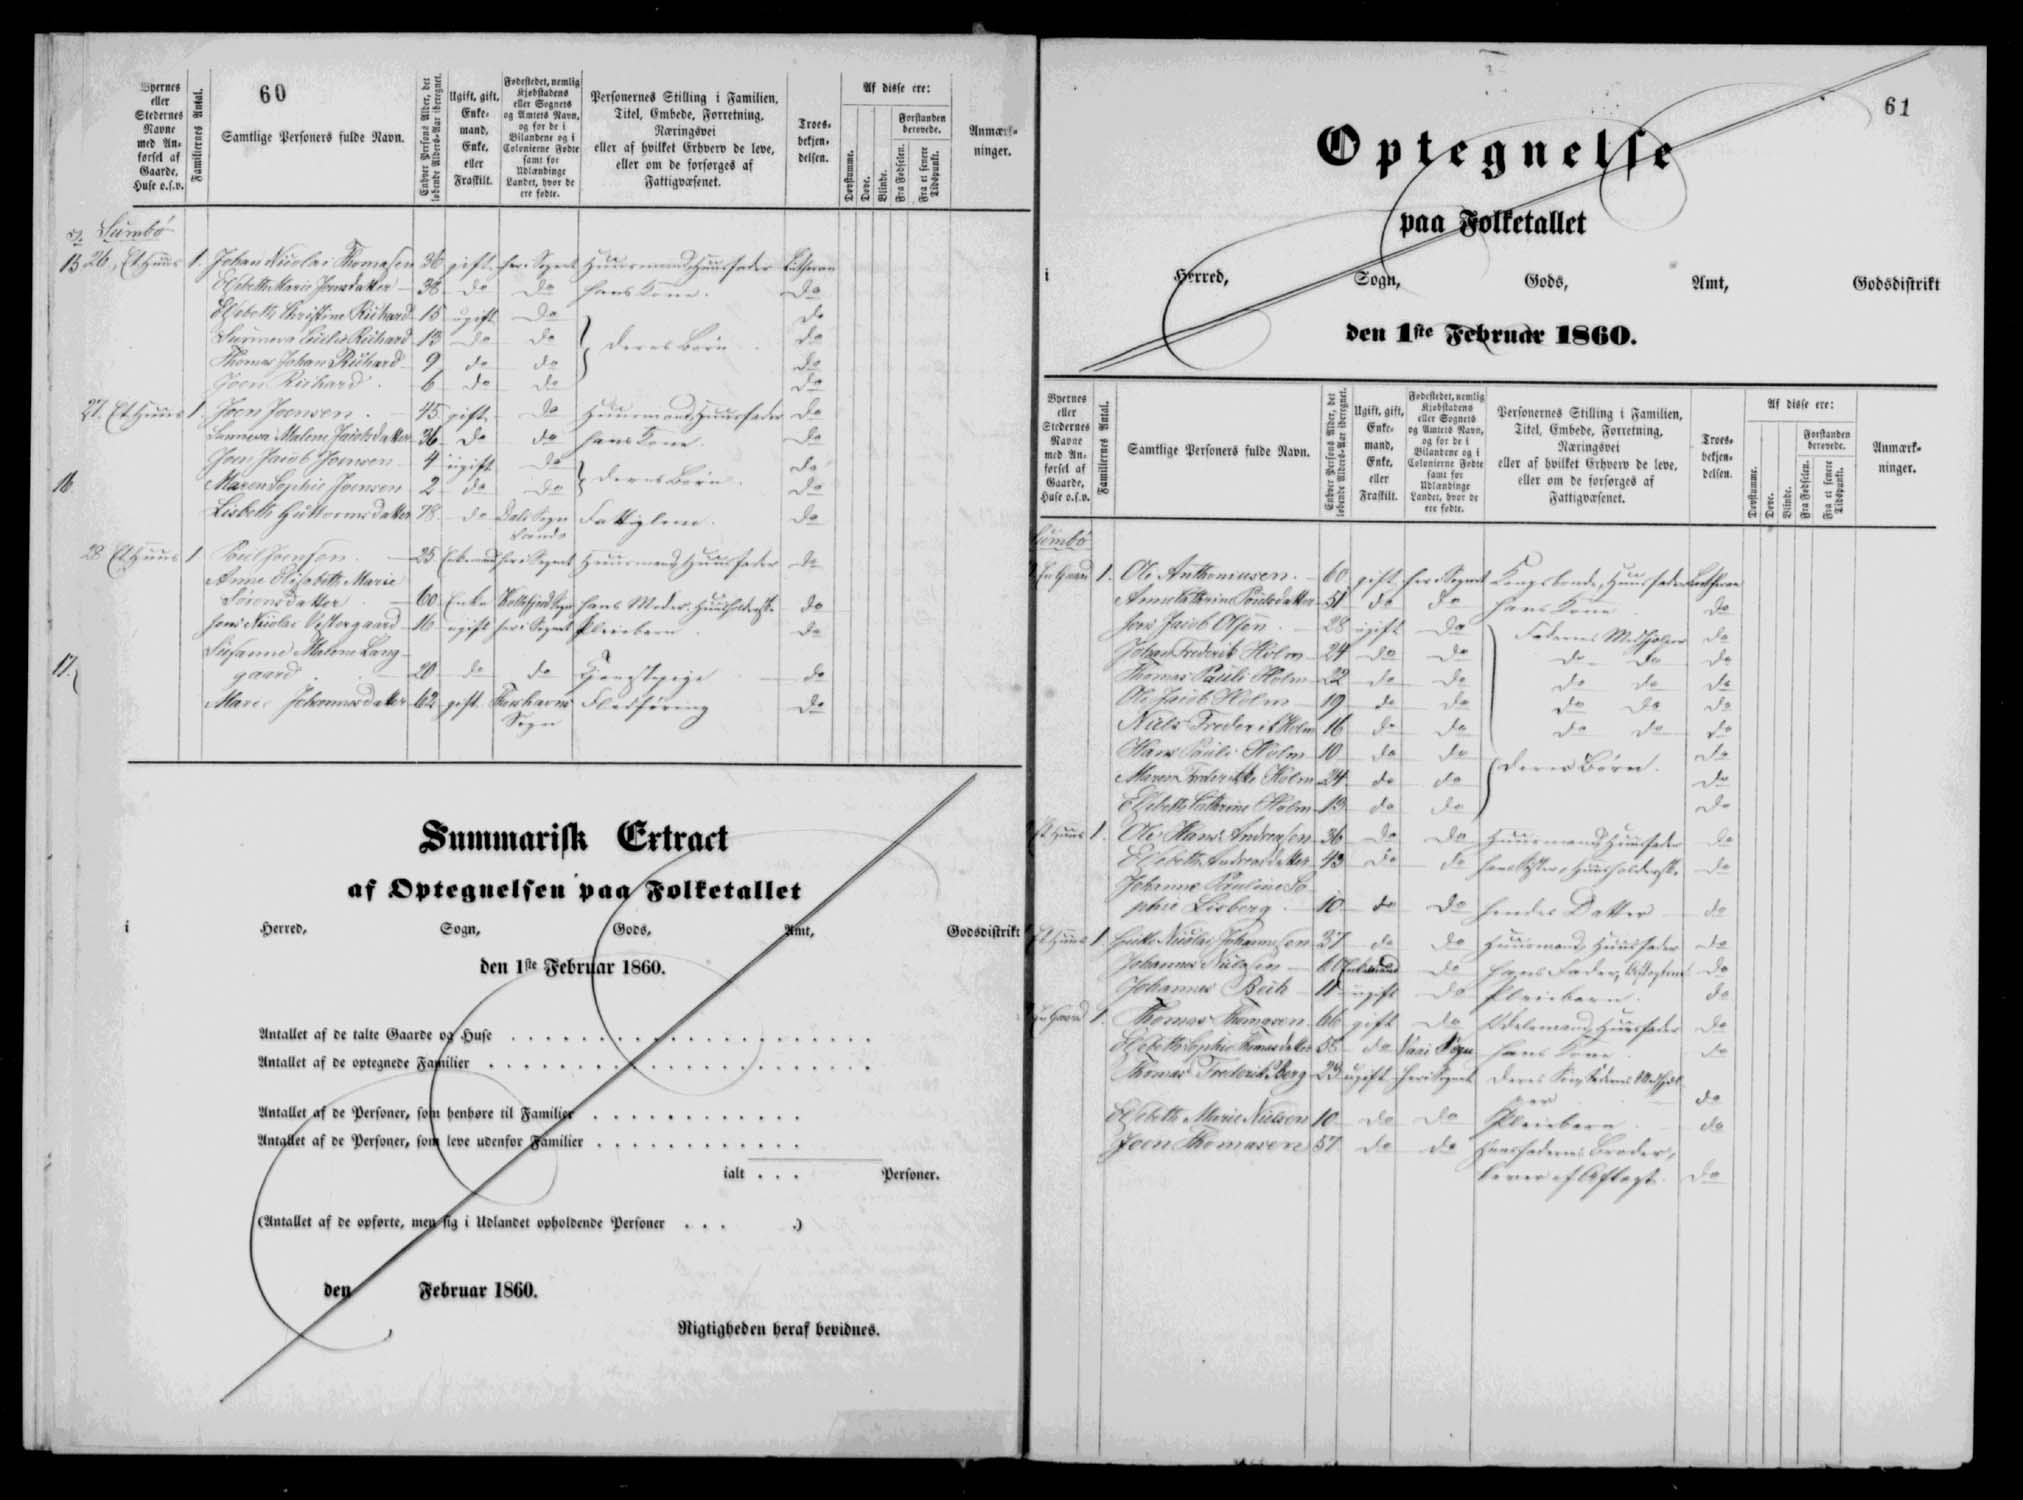 60
Byernes eller Stedernes Navne med Anførsel af Gaarde, Huse o.s.v.
Familiernes Antal.
Samtlige Personers fulde Navn.
Enhver Persons Alder, det løbende Alders-Aar iberegnet.
Ugift, gift, Enkemand, Enke, eller Fraskilt.
Fødestedet, nemlig Kjøbstadens eller Sognets og Amtets Navn, og for de i Bilandene og i Colonierne Fødte samt for Udlændinge Landet, hvor de ere fødte.
Personernes Stilling i Familien, Titel, Embede, Forretning, Næringsvei eller af hvilket Erhverv de leve, eller om de forsørges af Fattigvæsenet.
Troesbekjendelsen.
Af disse ere:
Døvstumme.
Døve.
Blinde.
Forstanden berøvede.
Fra Fødselen.
Fra et senere Tidspunkt.
Anmærkninger.
Sumbö
15 26. Et Huus 1. Johan Nicolai Thomasen 36 gift her i Sognet Huusmand, Huusfader Luthersn
Elsebeth Marie Joensdatter 38 do do hans Kone. do
Elsebeth Christine Richard 15 ugift do do
Richard 13 do do deres Børn do
Thomas Johan Richard 9 do do do
Joen Richard 6 do do do
27. Et Huus 1. Joen Joensen. 45 gift do Huusmand, Huusfader do
Malene Jacobsdatter 36 do do hans Kone. do
Joen Jacob Joensen 4 ugift do deres Børn. do
16 Maren Sophie Joensen 2 do do do
Lisbeth Guttormsdatter 78 do Sogn Fattiglem. do
28 Et Huus 1 Poul Joensen. 25 Enkemand her i Sognet Huusmand, Huusfader do
Anne Elisabeth Marie
Sørensdatter 60 Enke Sogn hans Moder, Huusholderske do
Jens Nicolai Vestergaard 16 ugift her i Sognet Pleiebarn. do
Susanne Malene Lang-
gaard. 20 do do Tjenestepige do
17. Maren Johannesdatter 62 gift Thorshavns Sogn do
Summarisk Extract
af Optegnelsen paa Folketallet
i Herred, Sogn, Gods, Amt, Godsdistrikt
den 1ste Februar 1860.
Antallet af de talte Gaarde og Huse
Antallet af de optegnede Familier
Antallet af de Personer, som henhøre til Familier
Antallet af de Personer, som leve udenfor Familier
ialt . . . Personer.
(Antallet af de opførte, men sig i Udlandet opholdende Personer . . . .)
den Februar 1860.
Rigtigheden heraf bevidnes.
61
Optegnelse
paa Folketallet
i Herred, Sogn, Gods, Amt, Godsdistrikt
den 1ste Februar 1860.
Byernes eller Stedernes Navne med Anførsel af Gaarde, Huse o.s.v.
Familiernes Antal.
Samtlige Personers fulde Navn.
Enhver Persons Alder, det løbende Alders-Aar iberegnet.
Ugift, gift, Enkemand, Enke, eller Fraskilt.
Fødestedet, nemlig Kjøbstadens eller Sognets og Amtets Navn, og for de i Bilandene og i Colonierne Fødte samt for Udlændinge Landet, hvor de ere fødte.
Personernes Stilling i Familien, Titel, Embede, Forretning, Næringsvei eller af hvilket Erhverv de leve, eller om de forsørges af Fattigvæsenet.
Troesbekjendelsen.
Af disse ere:
Døvstumme.
Døve.
Blinde.
Forstanden berøvede.
Fra Fødselen.
Fra et senere Tidspunkt.
Anmærkninger.
Sumbö
En Gaard 1. Ole Anthoniusen. 60 gift her i Sognet Kongsbonde, Huusfader Lutheran
Anne Cathrine Poulsdatter 51 do do hans Kone do
Jens Jacob Olsen. 28 ugift do Faderens Medhjælper do
Johan Frederik Holm 24 do do do do do
Thomas Pauli Holm 22 do do do do do
Ole Jacob Holm 19 do do do do do
Niels Frederik Holm 16 do do do do do
Hans Pauli Holm 10 do do deres Børn. do
Maren Frederikke Holm 24 do do do
Elsebeth Cathrine Holm 13 do do do
Et Huus 1. Ole Hans Andreasen 36 do do Huusmand, Huusfader do
Elsebeth Andreasdatter 43 do do hans Søster, Huusholderske do
Johanne Pauline So-
phie Lisberg 10 do do hendes Datter do
Et Huus 1 Nicolai Johannesen 37 do do Huusmand, Huusfader do
Johannes Nielsen Enkemand do hans Fader, do
Johannes Bech 11 ugift do Pleiebarn. do
En Gaard 1. Thomas Thomasen 66 gift do Odelsmand, Huusfader do
Elsebeth Sophie Thomasdatter 55 do Sogn hans Kone do
Thomas Frederik Berg 23 ugift her i Sognet deres Søn, Faderens Medhjæl-
per do
Elsebeth Marie Nielsen 10 do do Pleiebarn. do
Joen Thomasen 57 do do Huusfaderens Broder,
lever af Aftægt. do